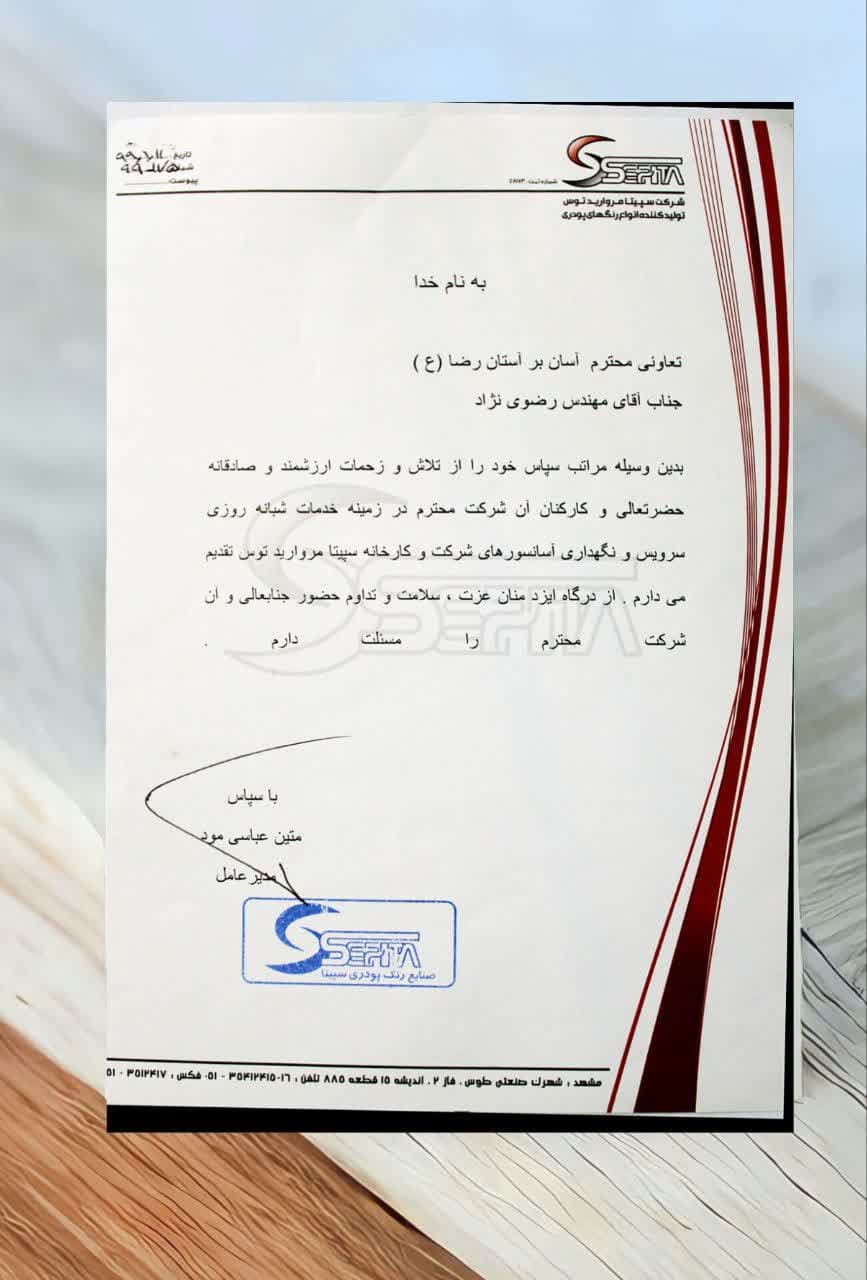 SEPITA
شماره ثبت
شرکت سپیتا مروارید توس
تولید کننده انواع رنگهای پودری
تاریخ
پیوست
به نام خدا
تعاونی محترم آسان بر آستان رضا (ع)
جناب آقای مهندس رضوی نژاد
بدین وسیله مراتب سپاس خود را از تلاش و زحمات ارزشمند و صادقانه
حضرتعالی و کارکنان آن شرکت محترم در زمینه خدمات شبانه روزی
سرویس و نگهداری آسانسورهای شرکت و کارخانه سپیتا مروارید توس تقدیم
می دارم . از درگاه ایزد منان عزت ، سلامت و تداوم حضور جنابعالی و آن
شرکت محترم را مسئلت دارم .
با سپاس
متین عباسی مود
مدیر عامل
SEPITA
صنایع رنگ پودری سپیتا
مشهد : شهرک صنعتی طوس . فاز ۲ . اندیشه ۱۵ قطعه ۸۸۵ تلفن : ۱۶-۳۵۴۱۲۴۱۵ - ۰۵۱ فکس : ۳۵۱۲۴۱۷ - ۰۵۱